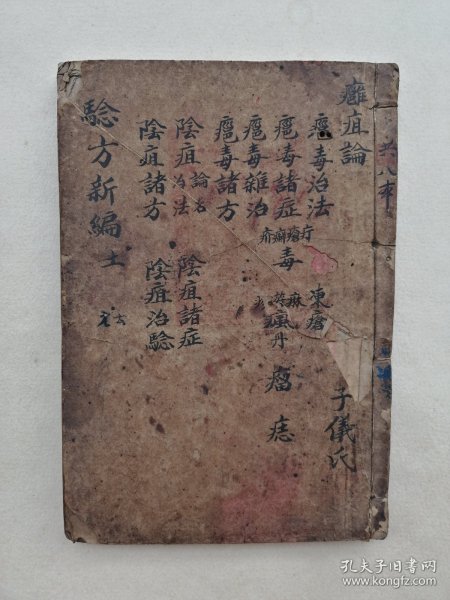 共八本
癰疽論
子儀氏
瘡毒治法
凍瘡
瘡毒諸症
疔瘡癬疥
毒
麻
瘋丹
瘤痣
瘡毒雜治
瘡毒諸方
陰疽論名治法
陰疽諸症
陰疽諸方
陰疽治驗
驗方新編
土
孔夫子旧书网
www.kongfz.com